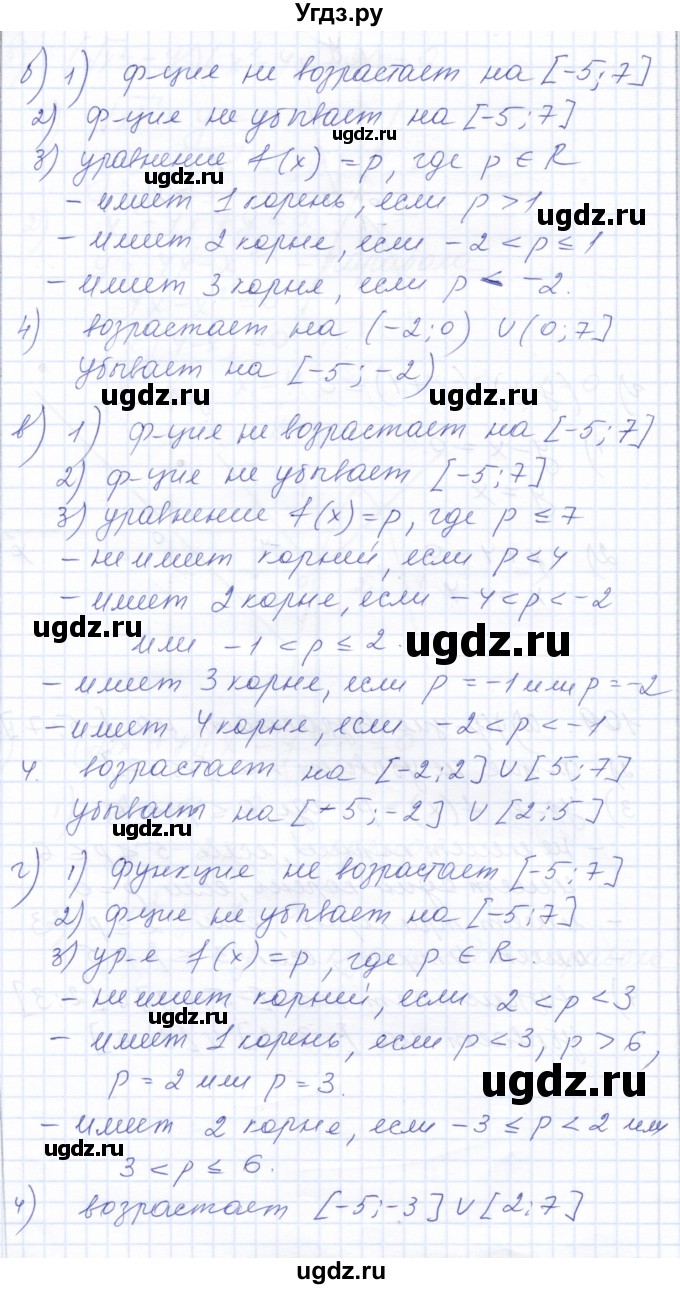 Угдз.ру
б) 1) ф-ция не возрастает на [-5; 7]
2) ф-ция не убывает на [-5; 7]
ugdz.ru
3) уравнение f(x) = p, где p ∈ R
ugdz.ru
- имеет 1 корень, если p > 1
ugdz.ru
- имеет 2 корня, если -2 < p ≤ 1
- имеет 3 корня, если p < -2.
4) возрастает на (-2; 0) ∪ (0; 7]
убывает на [-5; -2)
ugdz.ru ugdz.ru
в) 1) ф-ция не возрастает на [-5; 7]
2) ф-ция не убывает [-5; 7]
3) уравнение f(x) = p, где p ≤ 7
- не имеет корней, если p < 4
- имеет 2 корня, если -4 < p < -2
ugdz.ru
или -1 < p ≤ 2.
ugdz.ru
- имеет 3 корня, если p = -1 или p = -2
- имеет 4 корня, если -2 < p < -1
4. возрастает на [-2; 2] ∪ [5; 7]
убывает на [-5; -2] ∪ [2; 5]
ugdz.ru
г) 1) функция не возрастает [-5; 7]
2) ф-ция не убывает на [-5; 7]
3) ур-е f(x) = p, где p ∈ R.
- не имеет корней, если 2 < p < 3
ugdz.ru
- имеет 1 корень, если p < 3, p > 6,
p = 2 или p = 3.
ugdz.ru
- имеет 2 корня, если -3 ≤ p < 2 или
ugdz.ru
3 < p ≤ 6.
4) возрастает [-5; -3] ∪ [2; 7]
ugdz.ru